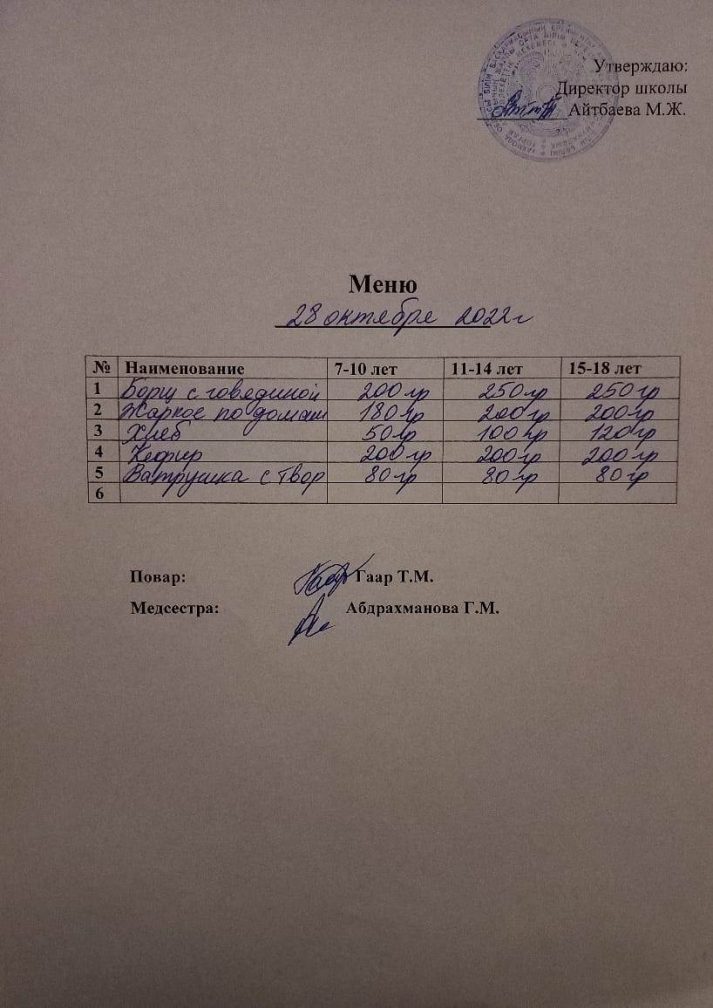 Утверждаю:
Директор школы
Айтбаева М.Ж.
Меню
28 октябре 2022г
№ Наименование 7-10 лет 11-14 лет 15-18 лет
1 Борщ с говядиной 200 гр 250 гр 250 гр
2 Жаркое по домаш 180 гр 200 гр 200 гр
3 Хлеб 50 гр 100 гр 120 гр
4 Кефир 200 гр 200 гр 200 гр
5 Ватрушка с твор 80 гр 80 гр 80 гр
6
Повар: Гаар Т.М.
Медсестра: Абдрахманова Г.М.